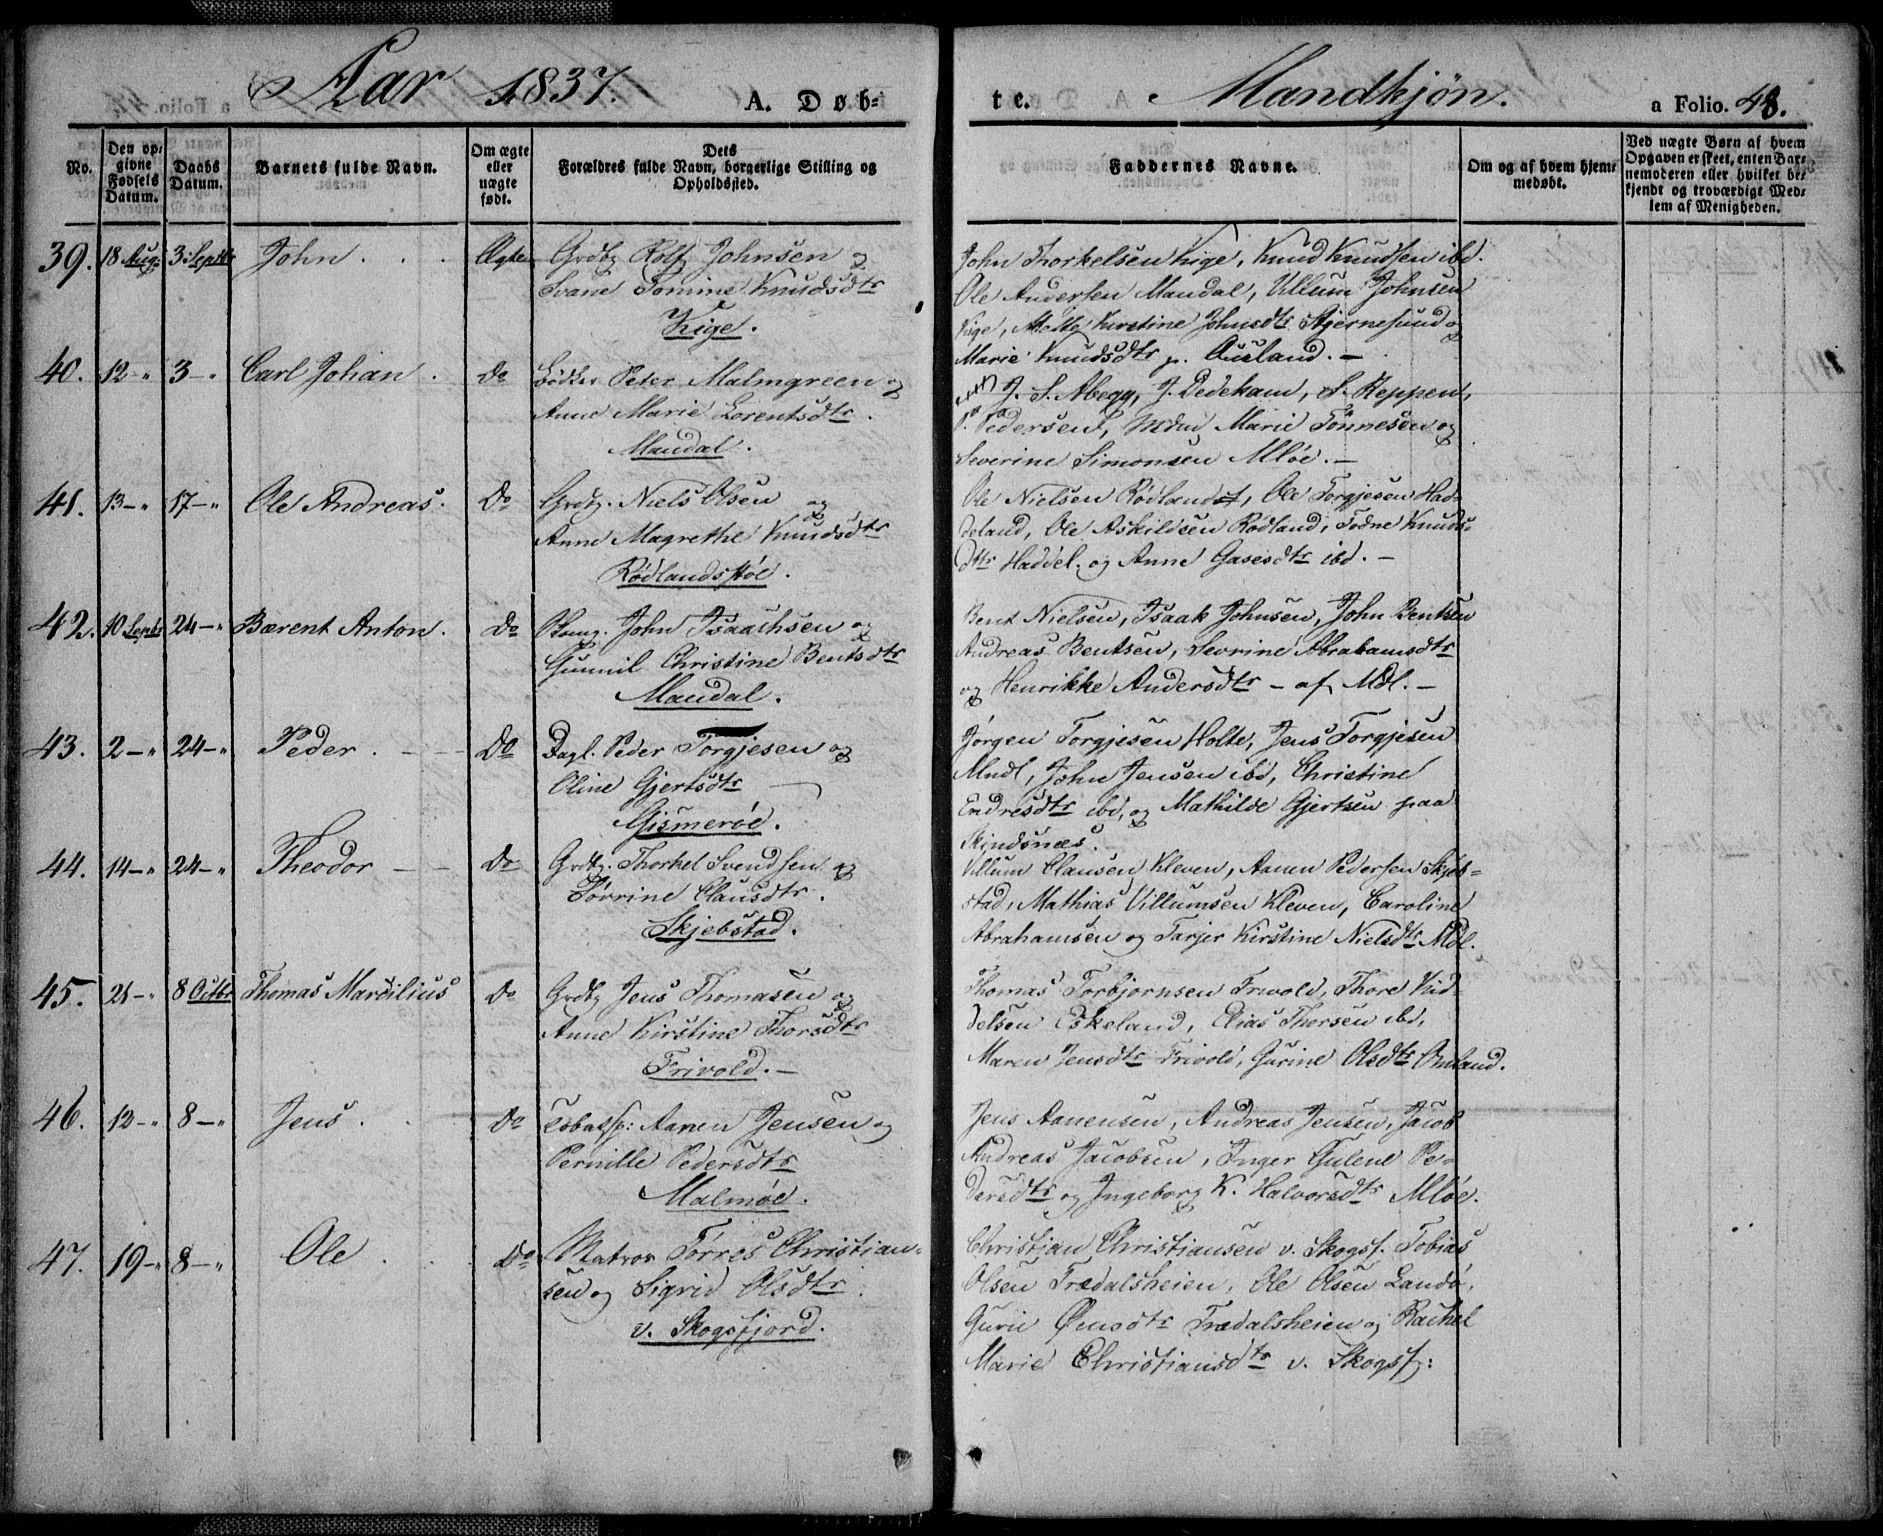 Aar 1837. A. Døb=
No.
Den op=
givne
Fødsels
Datum.
Daabs
Datum.
Barnets fulde Navn.
Om ægte
eller
uægte
født.
Dets
Forældres fulde Navn, borgerlige Stilling og
Opholdssted.
39. 18 Aug. 3 Septbr John . . . Ægte
Grdbr Rolf Johnsen og
Svane Tomine Knudsdtr
Kige.
40. 12 - " 3 - " Carl Johan . Do
Bødker Peter Malmgreen og
Anne Marie Lorentsdtr.
Mandal.
41. 13 - " 17 - " Ole Andreas. Do
Grdbr. Niels Olsen og
Anne Magrethe Knudsdtr
Rødlandsstøe.
42. 10 Septbr 24 - " Bærent Anton. Do
John Isaachsen og
Gunnil Christine Bentsdtr
Mandal.
43. 2 - " 24 - " Peder . - - Do
Dagl. Peder Torgjesen og
Oline Gjertsdtr
Gismerøe.
44. 14 - " 24 - " Theodor - - Do
Grdbr. Thorkel Svendsen og
Sørrine Clausdtr.
Skjebstad.
45. 21 - " 8 Octbr Thomas Marcilius Do
Grdbr Jens Thomasen og
Anne Kirstine Thorsdtr
Frivold. -
46. 12 - " 8 - " Jens . . . Do
Aanen Jensen og
Pernille Pedersdtr
Malmøe.
47. 19 - " 8 - " Ole . . . Do
Matros Tørres Christian=
sen og Sigrid Olsdtr.
v. Skogsfjord.
te. Mandkjøn. a Folio. 48.
Faddernes Navne.
Om og af hvem hjem=
medøbt.
Ved uægte Børn af hvem
Opgaven er skeet, enten Bar=
nemoderen eller hvilket be=
kjendt og troværdigt Med=
lem af Menigheden.
John Thorkelsen Kige, Knud Knudsen ibd.
Ole Andersen Mandal, Villum Johnsen
Kige, Mette Kirstine Johnsdtr Stjernesund og
Marie Knudsdtr p. Oueland. -
J. S. Abegg, J. Dedekam, S. Reppen,
P. Pedersen, Mdm Marie Tønnesen og
Severine Simonsen Mløe. -
Ole Nielsen Rødland, Ole Torgjesen Had=
deland, Ole Askildsen Rødland, Todne Knuds=
dtr Haddel. og Anne Gasesdtr ibd. -
Bent Nielsen, Isaak Johnsen, John Bentsen
Andreas Bentsen, Sevrine Abrahamsdtr
og Henrikke Andersdtr - af Mdl. -
Jørgen Torgjesen Holte, Jens Torgjesen
Mndl, John Jensen ibd, Christine
Endresdtr ibd, og Mathilde Gjertsen paa
Skindsnæs.
Villum Clausen Kleven, Aanen Pedersen Skjeb=
stad, Mathias Villumsen Kleven, Caroline
Abrahamsen og Tarjer Kirstine Nielsdtr Mdl.
Thomas Torbjørnsen Frivold, Thore Vid=
delsen Eskeland, Elias Thorsen ibd,
Maren Jensdtr Frivold, Gurine Olsdtr Omland.
Jens Aanensen, Andreas Jensen, Jacob
Andreas Jacobsen, Inger Gulene Pe=
dersdtr og Ingeborg K. Halvorsdtr Mløe.
Christjan Christiansen v. Skogsf. Tobias
Olsen Trædalsheien, Ole Olsen Landø,
Guri Ønsdtr Trædalsheien og Rachel
Marie Christiansdtr v. Skogsfj: